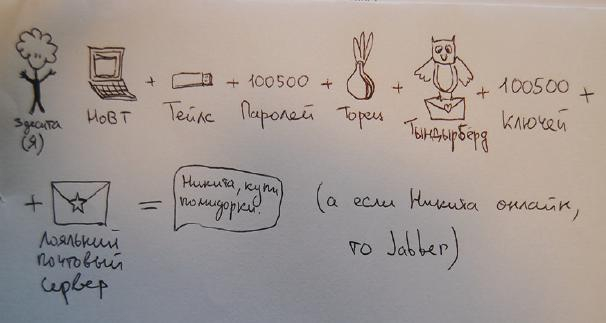 + + 100500 + + + 100500 +
Новт Тейлс Паролей Торец Тындырбёрд Ключей
(Я)
+ = Никита, купи
помидорки.
(а если Никита онлайн,
то Jabber)
Лояльний
почтовый
сервер